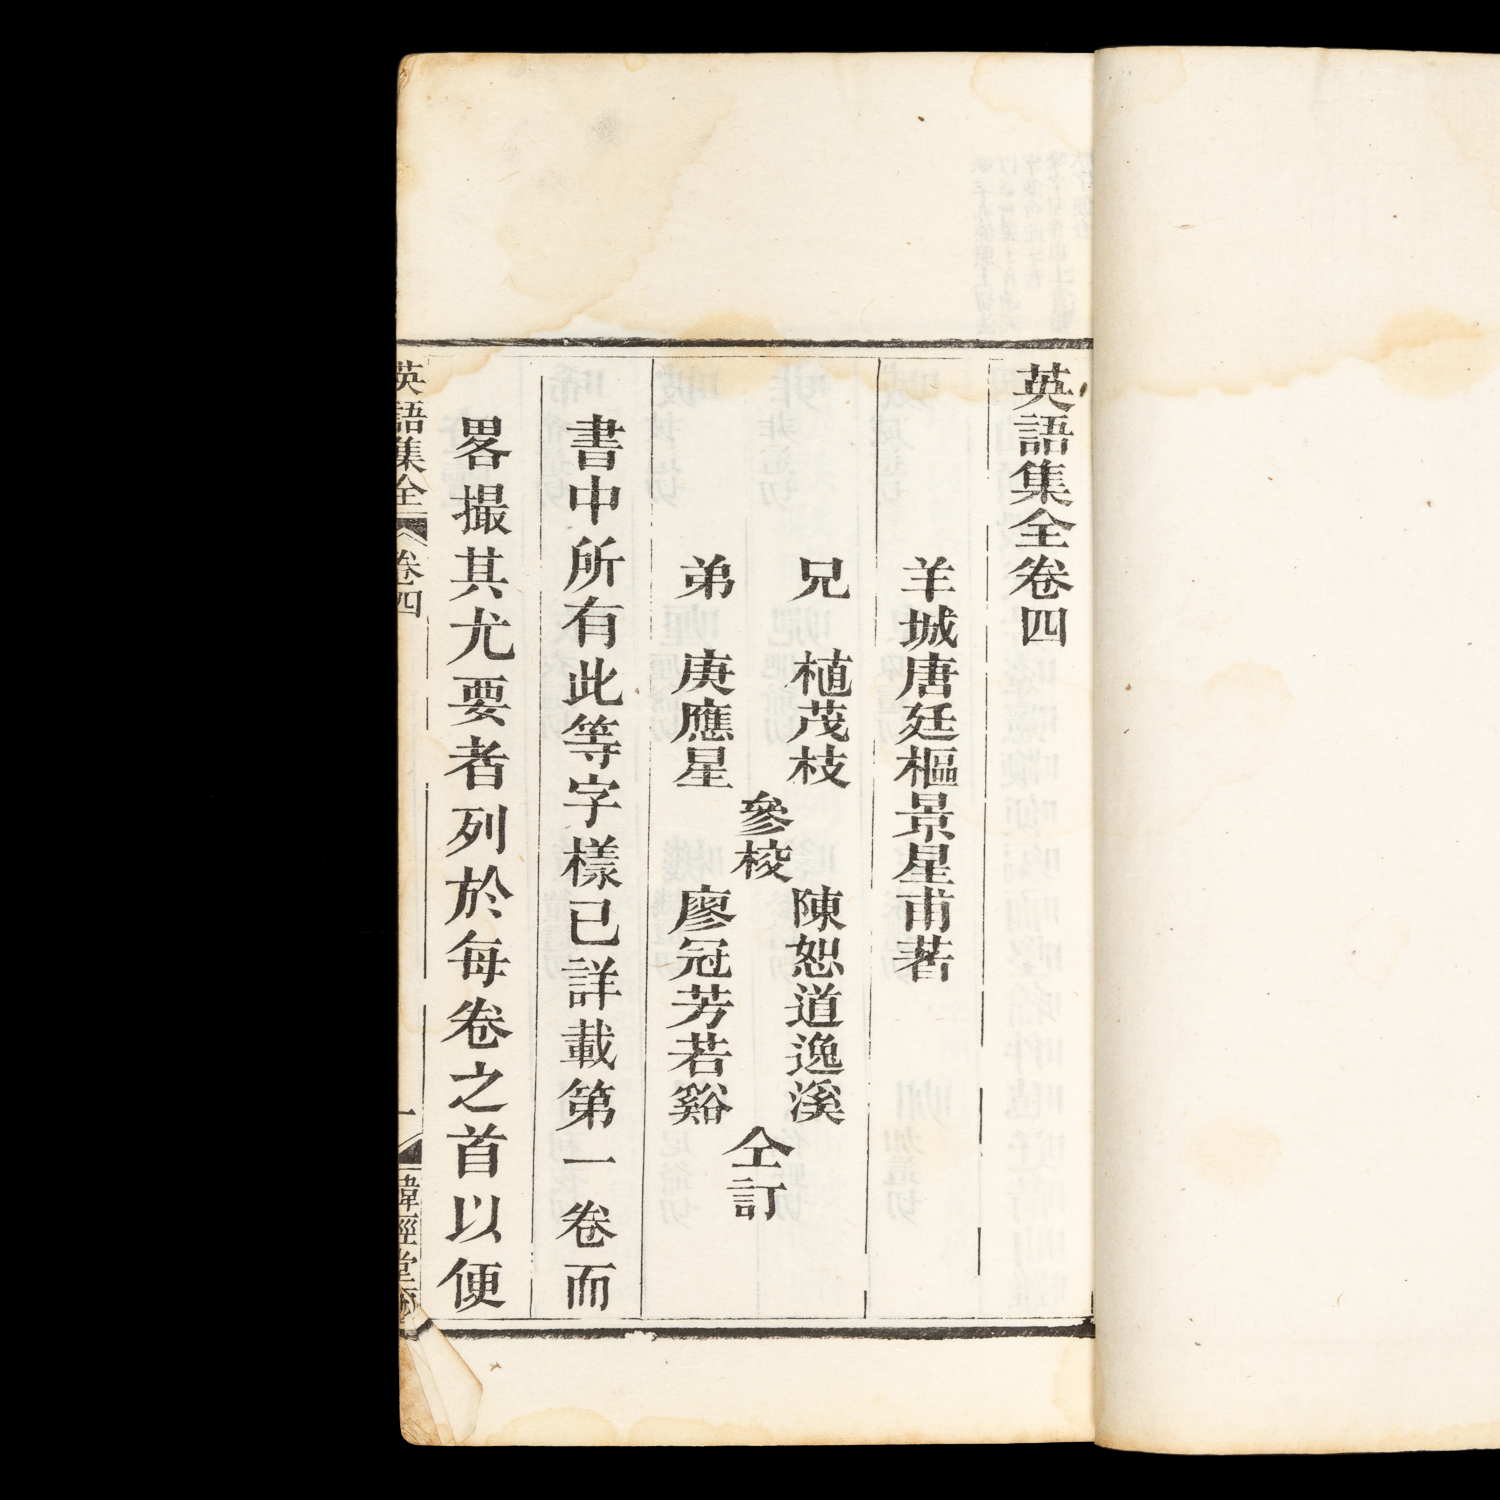 英語集全卷四
羊城唐廷樞景星甫著
兄 植茂枝 陳恕道逸溪
參校 仝訂
弟 庚應星 廖冠芳若谿
書中所有此等字樣已詳載第一卷而
畧撮其尤要者列於每卷之首以便
英語集全 卷四 一 緯經堂